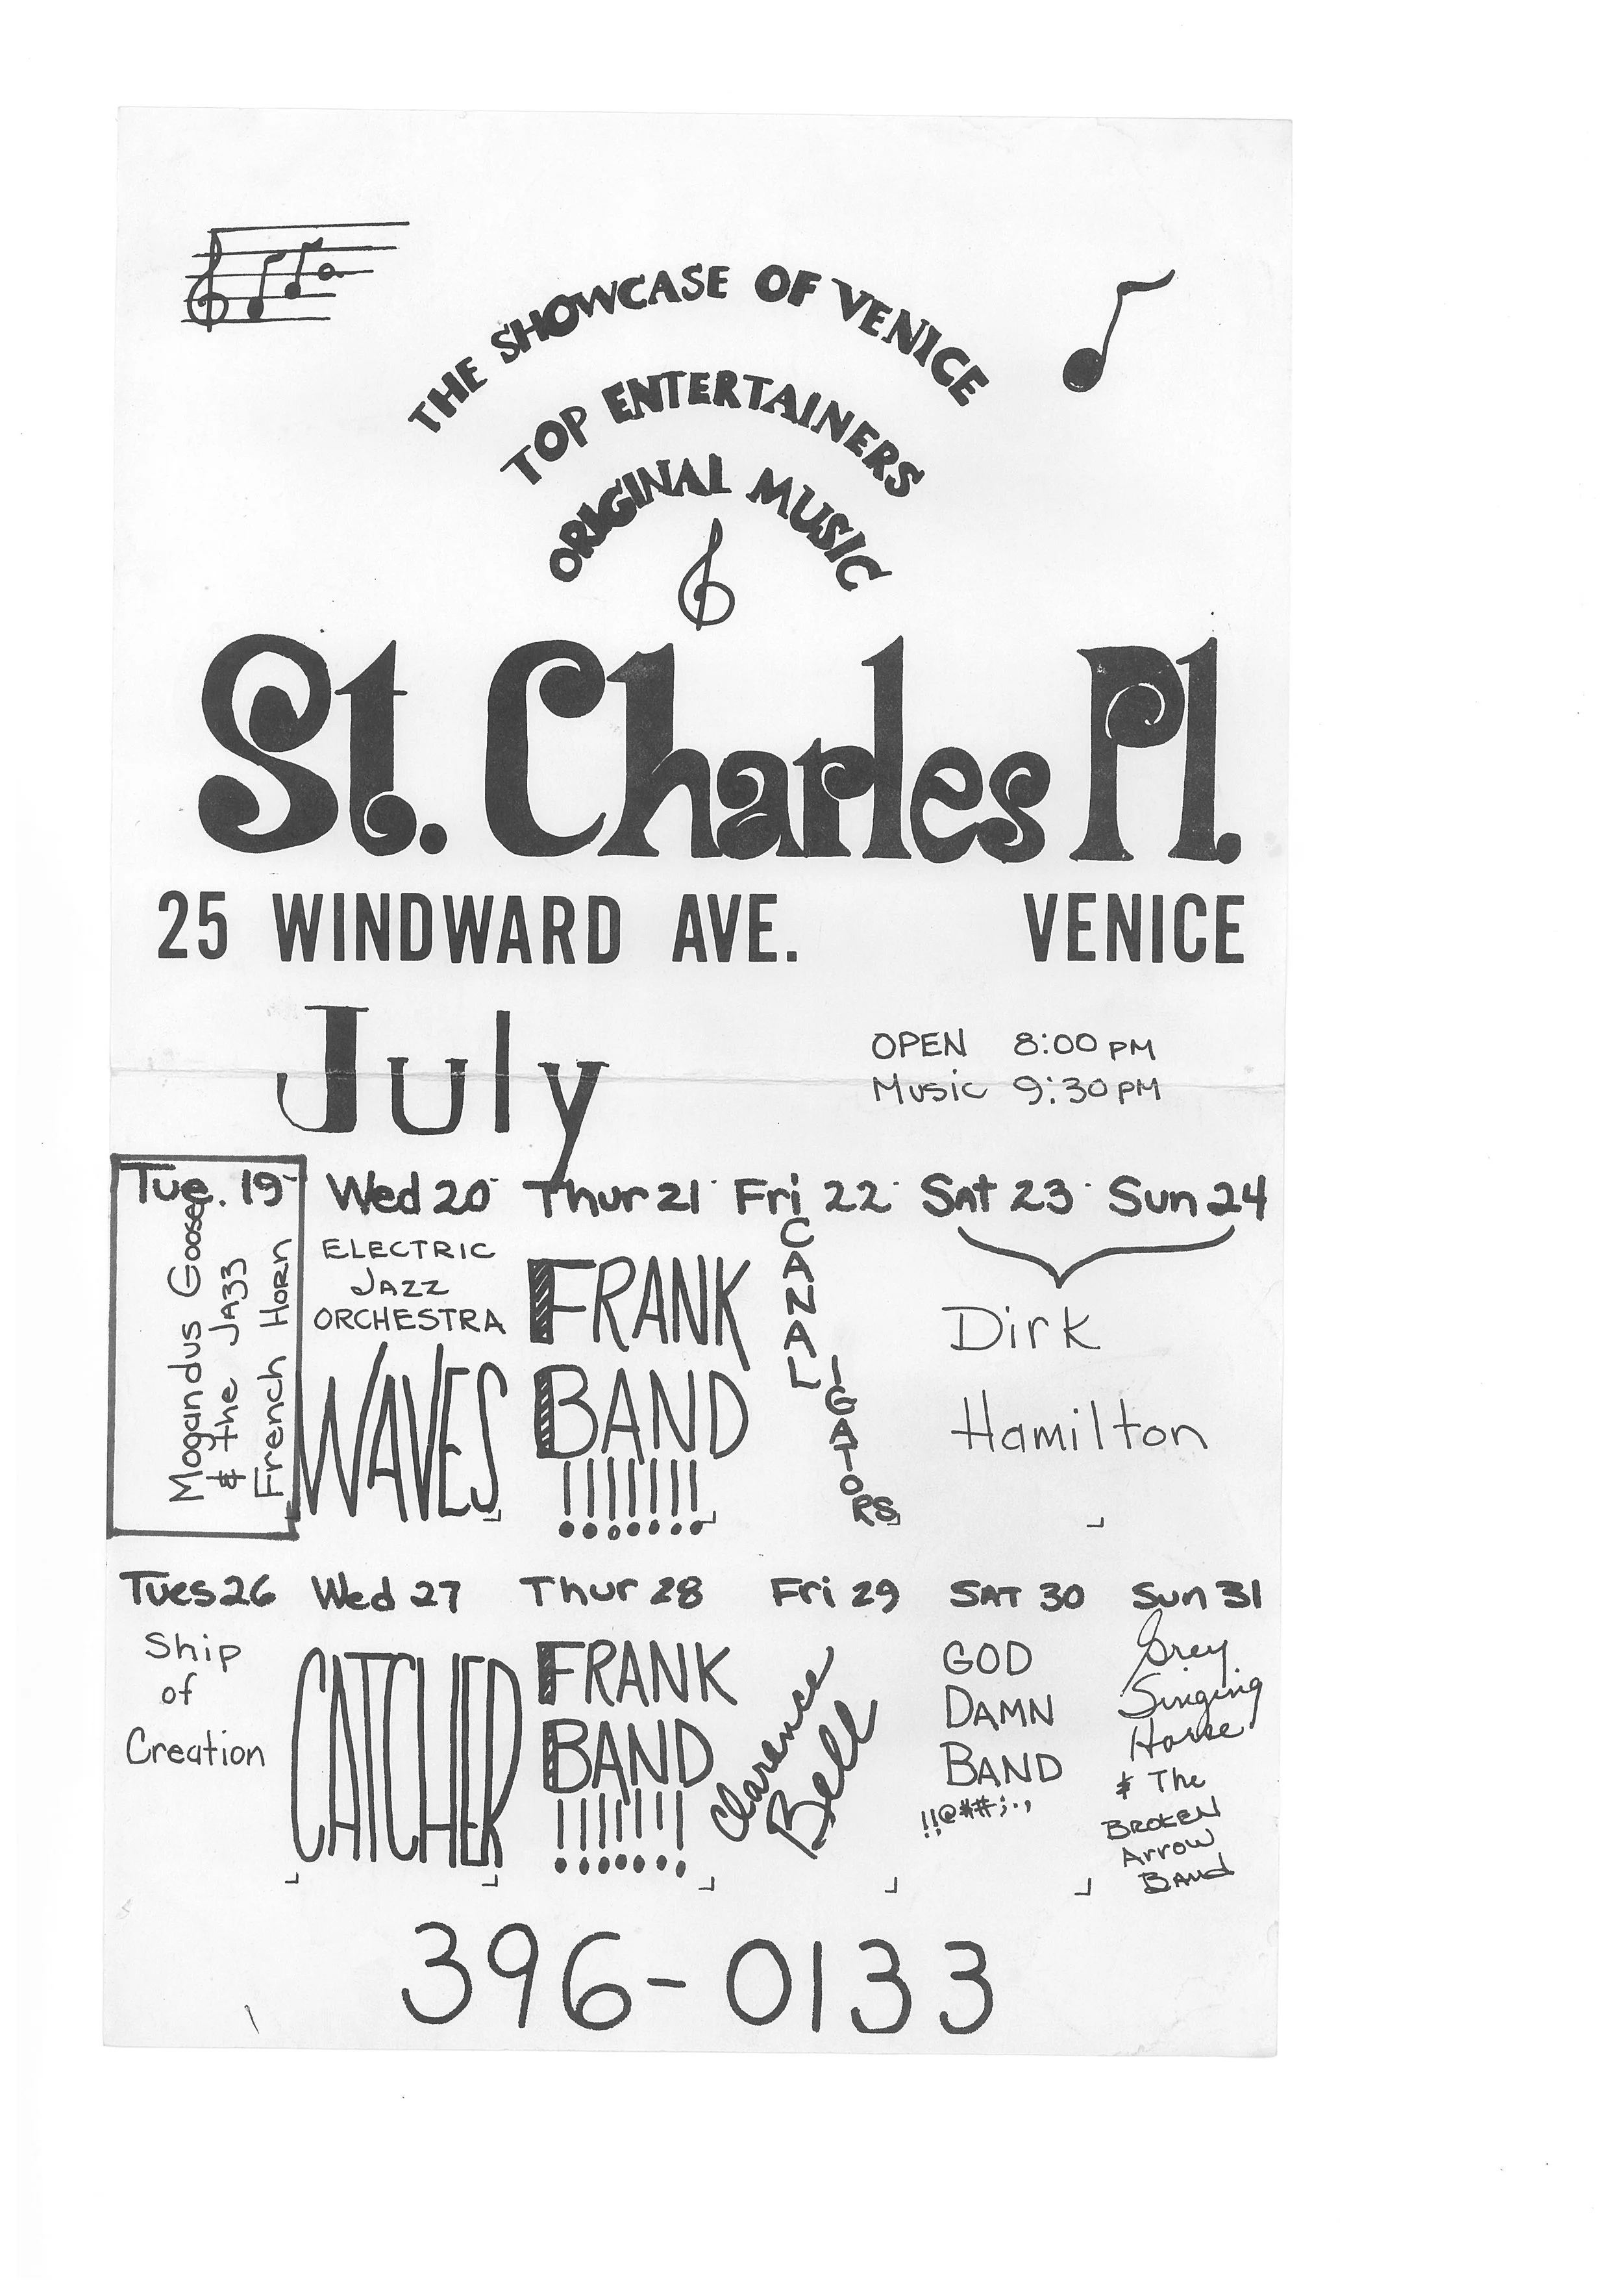 THE SHOWCASE OF VENICE
TOP ENTERTAINERS
ORIGINAL MUSIC
St. Charles Pl.
25 WINDWARD AVE. VENICE
July
OPEN 8:00 PM
Music 9:30 PM
Tue. 19
Mogandus Goose
& the Jazz
French Horn
Wed 20
ELECTRIC
JAZZ
ORCHESTRA
WAVES
Thur 21
FRANK
BAND
!!!!!!!
Fri 22
CANAL
IGATORS
Sat 23 Sun 24
Dirk
Hamilton
Tues 26
Ship
of
Creation
Wed 27
CATCHER
Thur 28
FRANK
BAND
!!!!!!!
Fri 29
Clarence
Bell
SAT 30
GOD
DAMN
BAND
!!@##;.,
Sun 31
Grey
Singing
Horse
& The
BROKEN
Arrow
BANd
396-0133